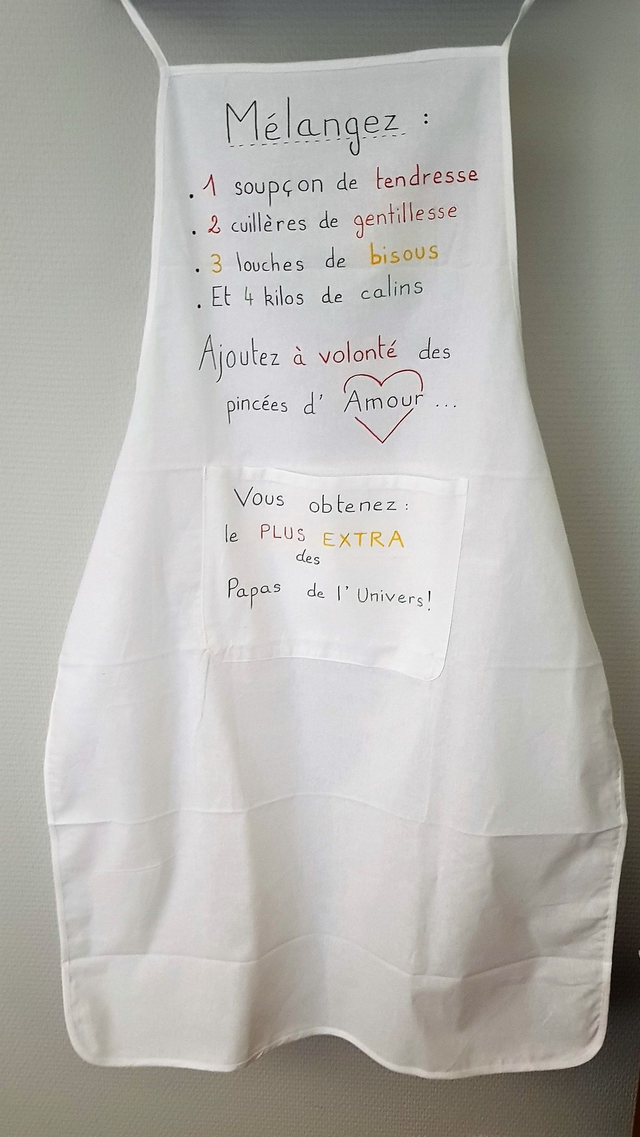 Mélangez :
. 1 soupçon de tendresse
. 2 cuillères de gentillesse
. 3 louches de bisous
. Et 4 kilos de calins
Ajoutez à volonté des
pincées d' Amour ...
Vous obtenez :
le PLUS EXTRA
des
Papas de l'Univers!